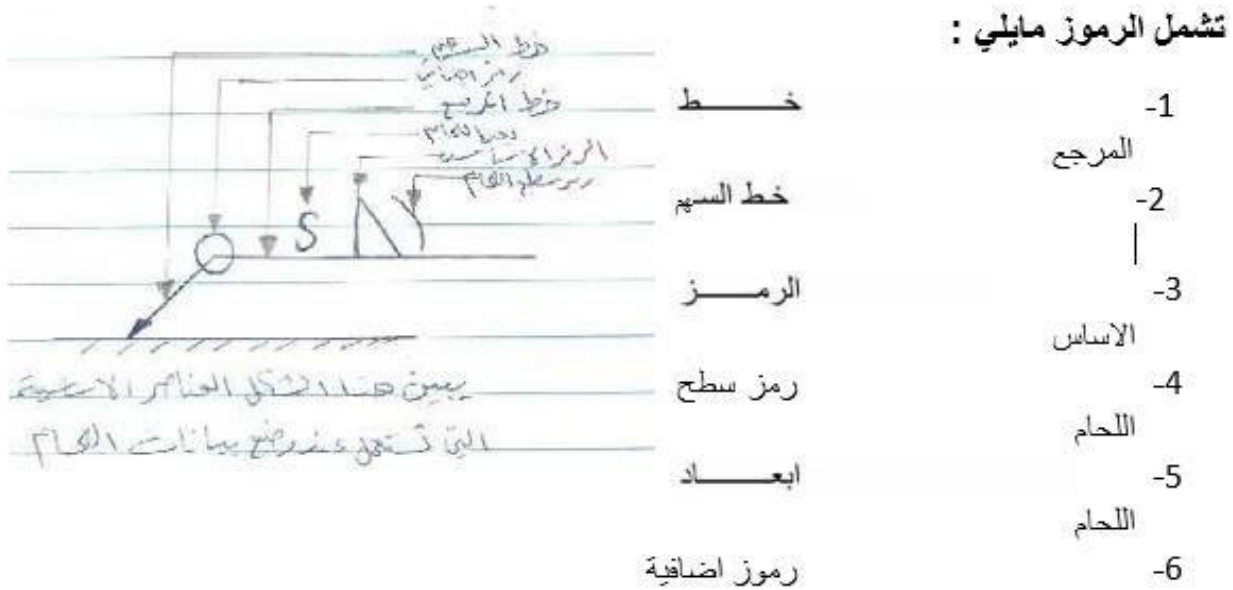 تشمل الرموز مايلي :
1- خــــــط
المرجع
2- خط السهم
3- الرمـــــز
الاساس
4- رمز سطح
اللحام
5- ابعـــــــاد
اللحام
6- رموز اضافية
خط السهم
رمز اضافي
خط المرجع
ابعاد اللحام
الرمز الاساسي
رمز سطح اللحام
S
يبين هذا الشكل العناصر الاساسية
التي تستعمل عند وضع بيانات اللحام